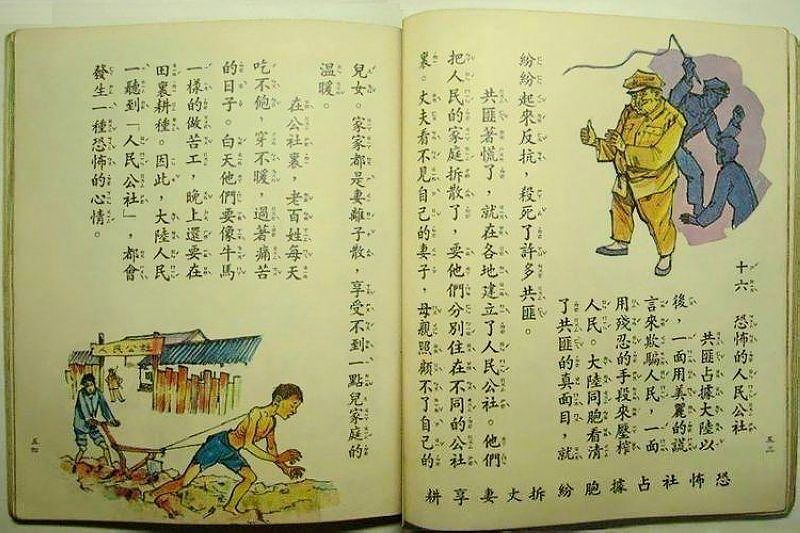 十六　恐怖的人民公社
共匪占據大陸以
後，一面用美麗的謊
言來欺騙人民，一面
用殘忍的手段來壓榨
人民。大陸同胞看清
了共匪的真面目，就
紛紛起來反抗，殺死了許多共匪。
共匪著慌了，就在各地建立了人民公社。他們
把人民的家庭拆散了，要他們分別住在不同的公社
裏。丈夫看不見自己的妻子，母親照顧不了自己的
恐怖社占據胞紛拆丈妻享耕
五三
兒女。家家都是妻離子散，享受不到一點兒家庭的
溫暖。
在公社裏，老百姓每天
吃不飽，穿不暖，過著痛苦
的日子。白天他們要像牛馬
一樣的做苦工，晚上還要在
田裏耕種。因此，大陸人民
一聽到「人民公社」，都會
發生一種恐怖的心情。
人民公社
五四